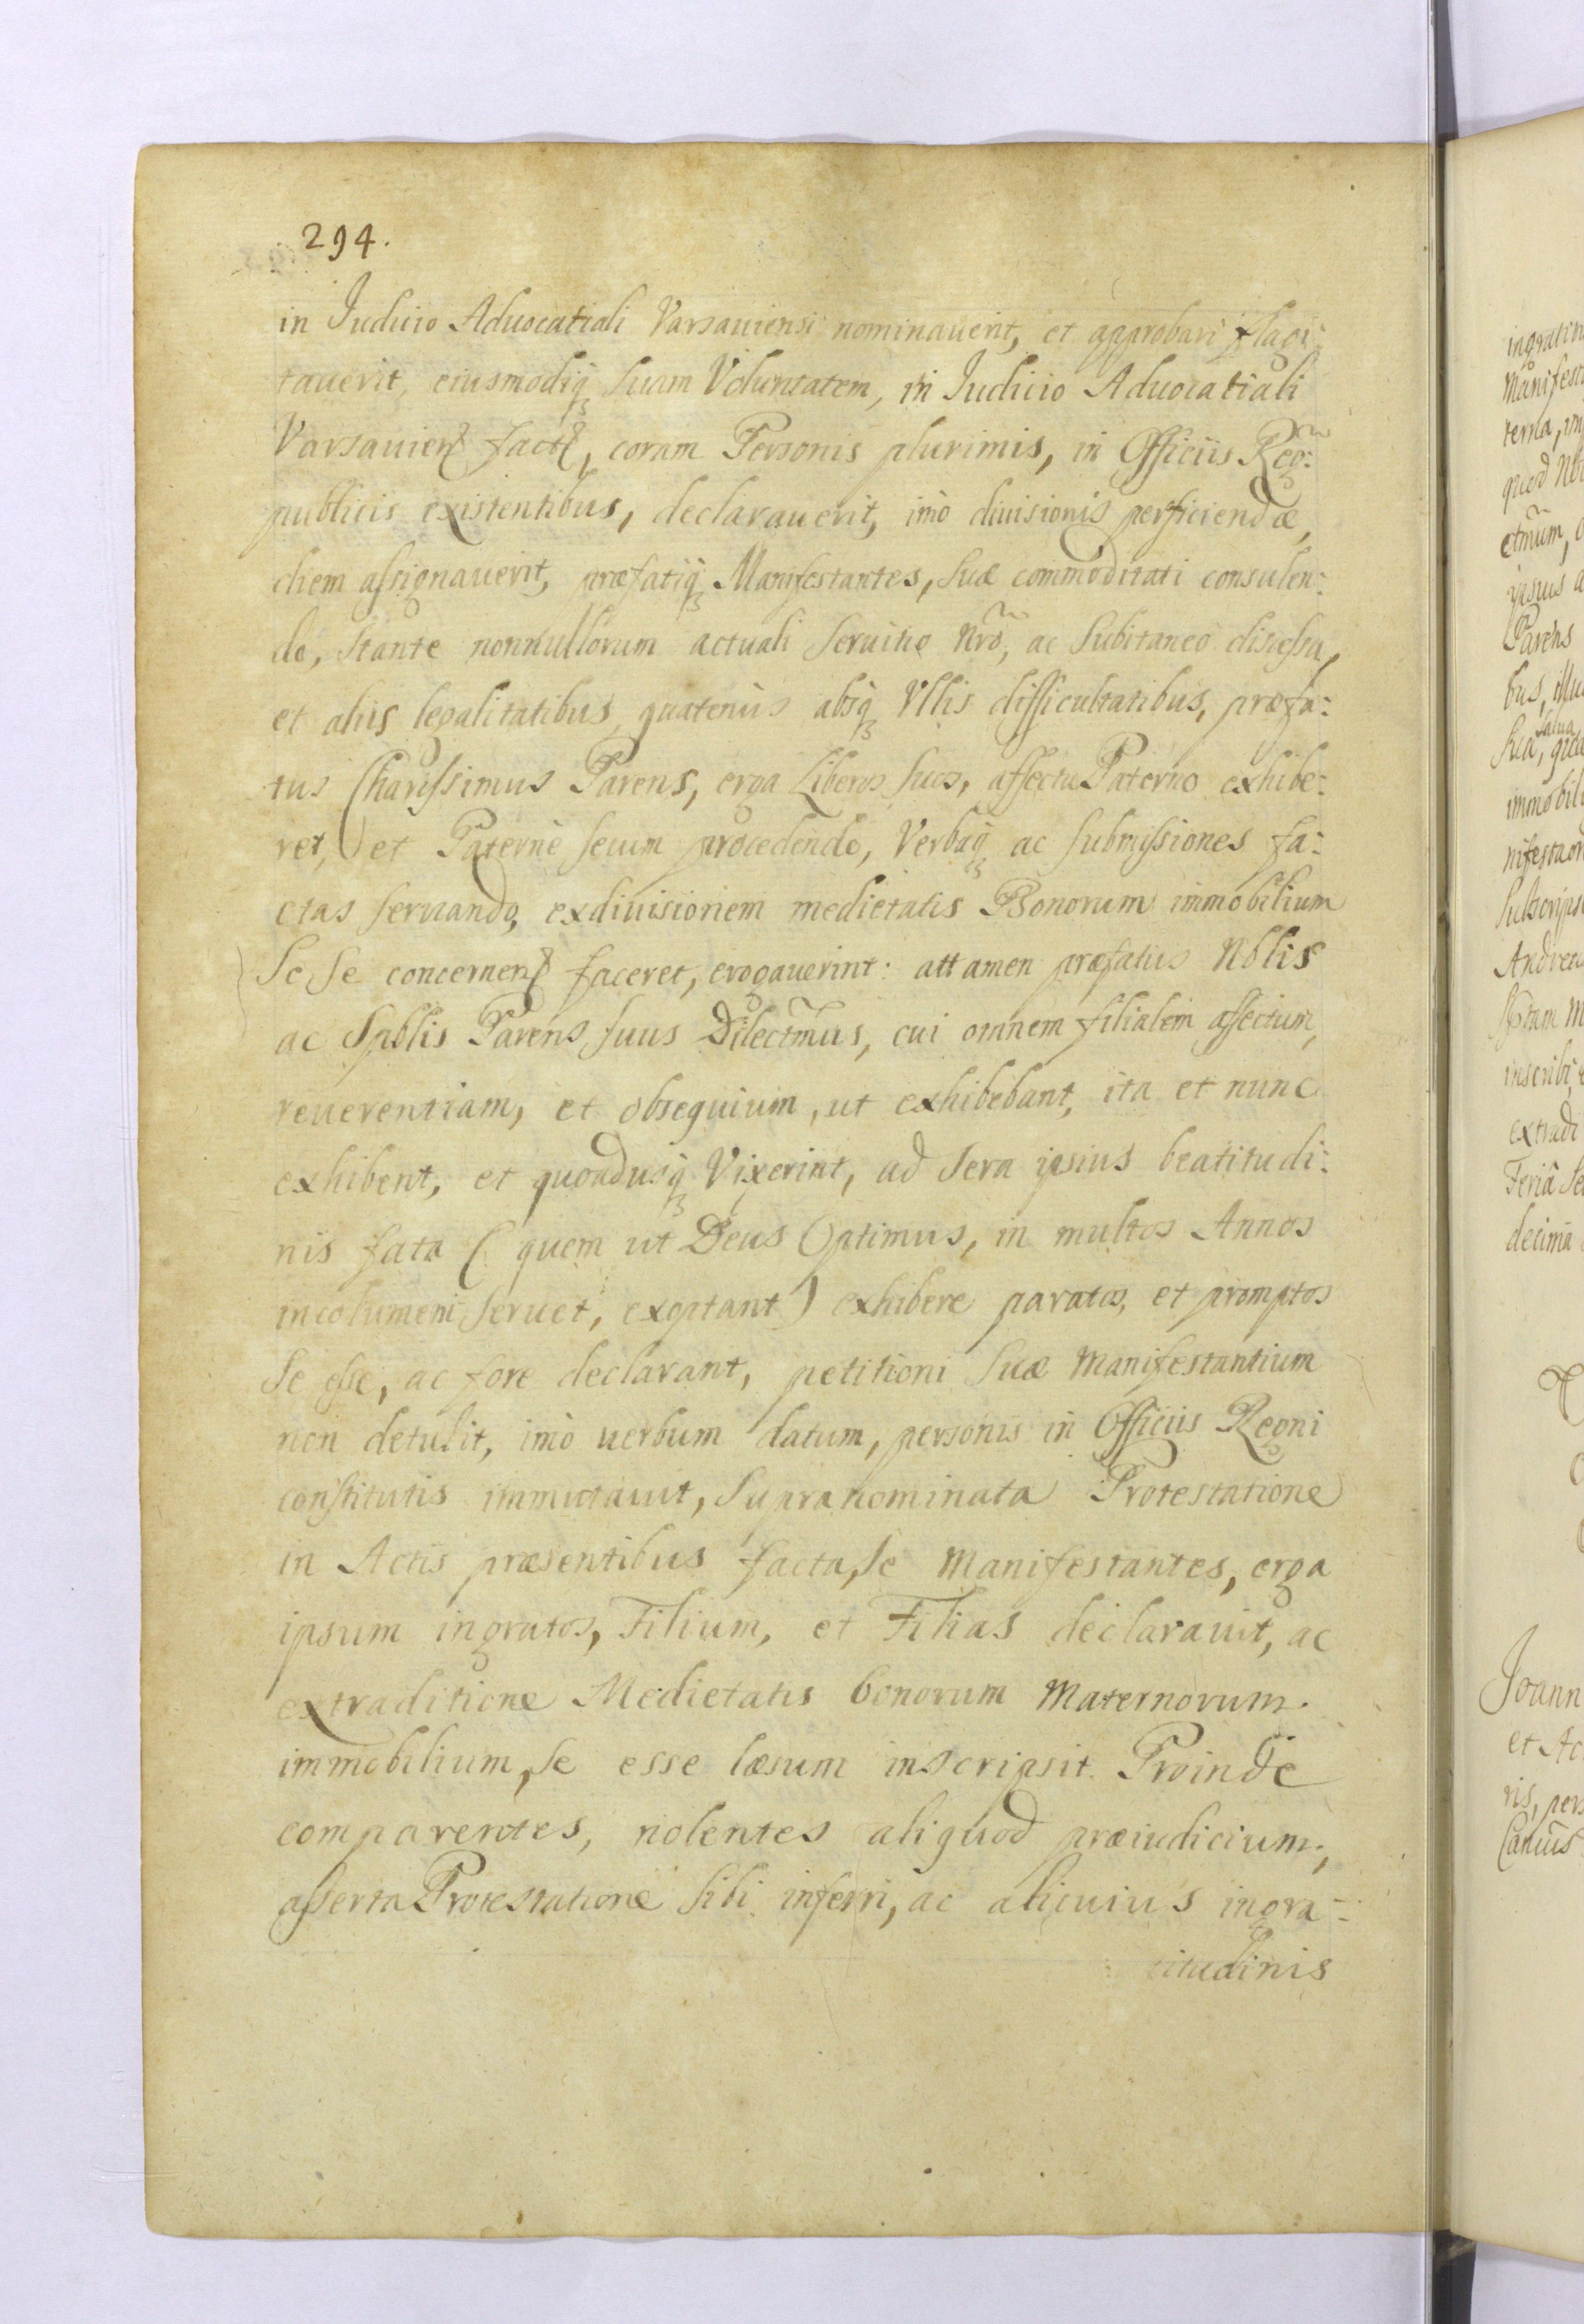 294.
in Iudicio Aduocatiali Varsauiensi nominauerit, et approbari flagi:
tauerit, eiusmodiq̃ Suam Voluntatem, in Iudicio Aduocatiali
Varsauien̄ fact̄, coram Personis plurimis, in Officiis Reg̃:
publicis existentibus, declarauerit, imò diuisionis perficiendæ,
diem assignauerit, præfatiq̃ Manifestantes, Suæ commoditati consulen:
do, stante nonnullorum actuali Seruitio Nr̃o, ac Subitaneo discessu,
et aliis legalitatibus, quatenùs absq̃ Vllis difficultatibus, præfa:
tus Charissimus Parens, erga Liberos Suos, affectu Paterno exhibe:
ret, et Paternè Secum procedendo, Verbaq̃ ac Submissiones fa:
ctas Seruando, exdiuisionem medietatis Bonorum immobilium
Se Se concernen̄ faceret, erogauerint: attamen præfatus Nblis
ac Spblis Parens Suus Dilectm̃us, cui omnem filialem affectum,
reuerentiam, et obsequium, ut exhibebant, ita et nunc
exhibent, et quoadusq̃ Vixerint, ad Sera ipsius beatitudi:
nis fata ( quem ut Deus Optimus, in multos Annos
incolumem Seruet, exoptant ) exhibere paratos, et promptos
Se esse, ac fore declarant, petitioni Suæ Manifestantium
non detulit, imò uerbum datum, personis in Officiis Regni
constitutis immutauit, Supranominata Protestatione
in Actis præsentibus facta, Se Manifestantes, erga
ipsum ingratos, Filium, et Filias declarauit, ac
extraditione Medietatis bonorum Maternorum
immobilium, Se esse læsum inscripsit. Proinde
comparentes, nolentes aliquod præiudicium,
asserta Protestatione Sibi inferri, ac alicuius ingra-:
titudinis
Manifest
quod
Parens
immobili
Andrea
inscribi,
extradi
decima
Joann
et Ac
ris, pers